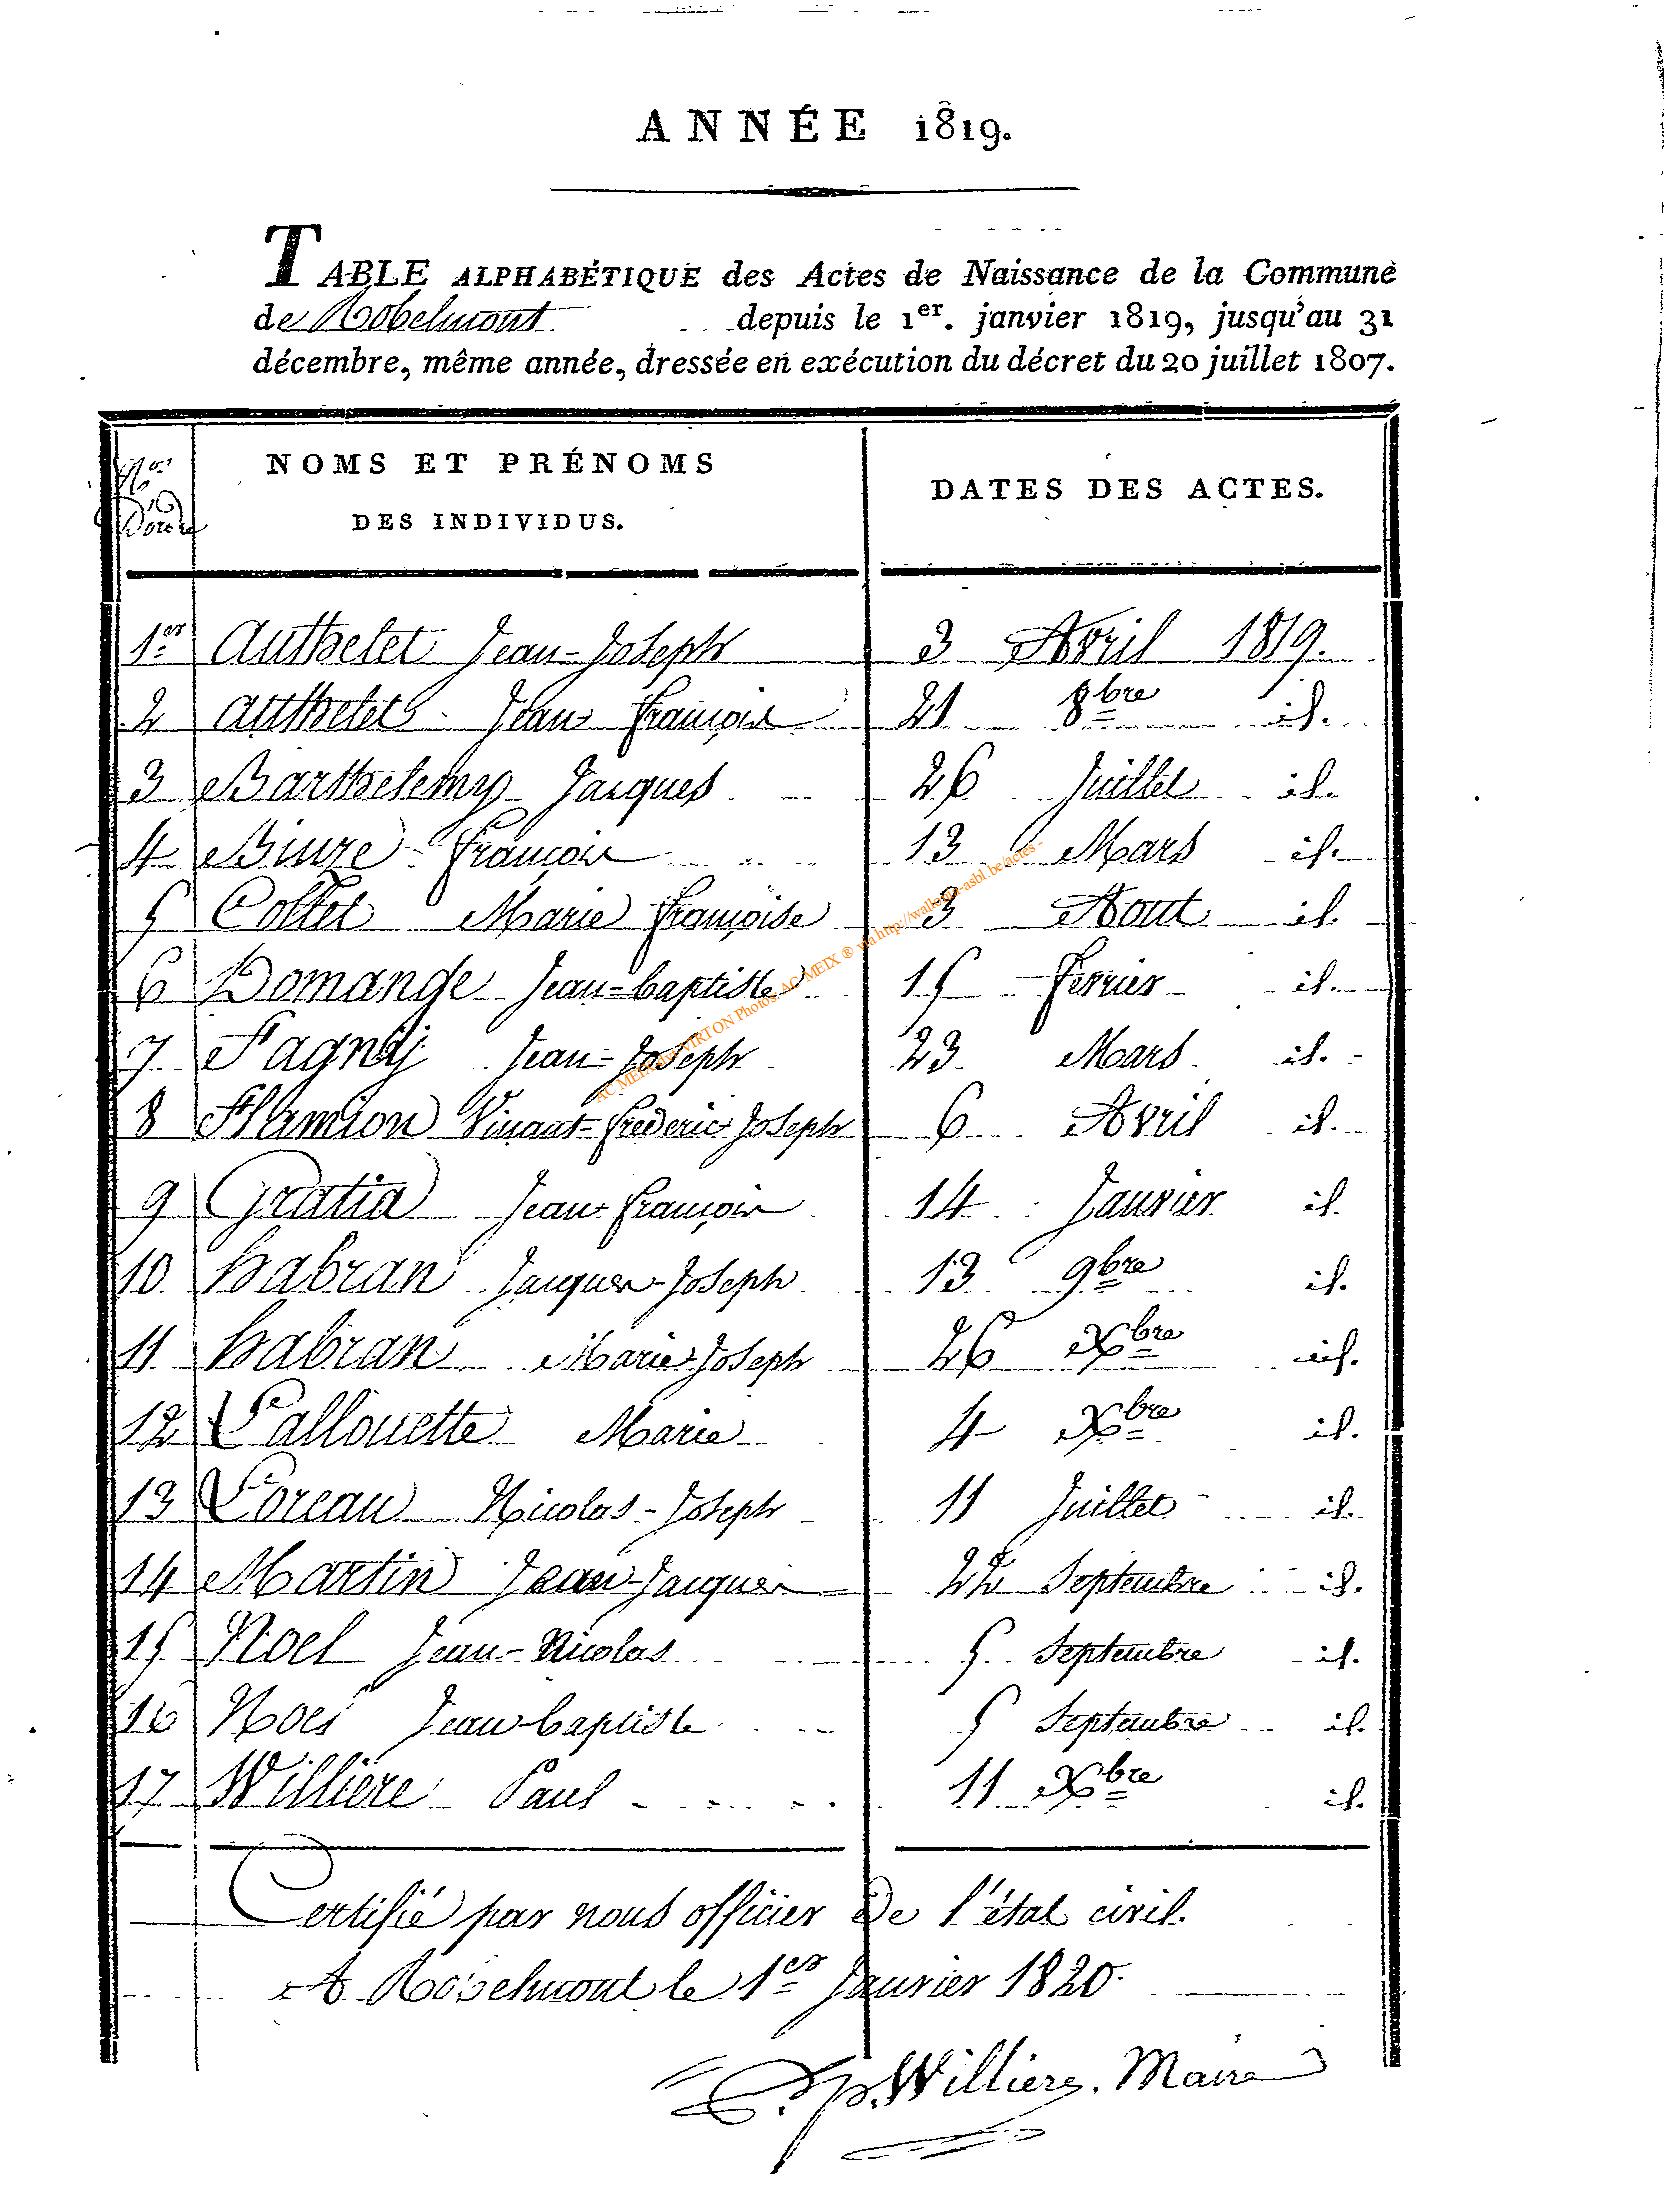 ANNÉE 1819.
TABLE ALPHABÉTIQUE des Actes de Naissance de la Commune
de Robelmont depuis le 1er. janvier 1819, jusqu'au 31
décembre, même année, dressée en exécution du décret du 20 juillet 1807.
Nos
D'ordre
NOMS ET PRÉNOMS
DES INDIVIDUS.
DATES DES ACTES.
1er Authelet Jean-Joseph 3 Avril 1819.
2 Authelet Jean François 21 8bre id.
3 Barthelemy Jacques 26 Juillet id.
4 Binze François 13 Mars id.
5 Collet Marie Françoise 3 Aout id.
6 Domange Jean-baptiste 15 fevrier id.
7 Fagny Jean-Joseph 23 Mars id.
8 Flamion Vincent frederic Joseph 6 Avril id.
9 Gratia Jean françois 14 Janvier id.
10 habran Jacques-Joseph 13 9bre id.
11 habran Marie-Joseph 26 Xbre id.
12 Lallouette Marie 4 Xbre id.
13 Loreau Nicolas-Joseph 11 Juillet id.
14 Martin Jean-Jacques 22 Septembre id.
15 Noel Jean-Nicolas 5 Septembre id.
16 Noel Jean baptiste 5 Septembre id.
17 Williere Paul 11 Xbre id.
Certifié par nous officier de l'état civil.
A Robelmont le 1er Janvier 1820.
p. Williere, Maire
AC MEIX-DT-VIRTON Photos AC MEIX ® via http://wallonia-asbl.be/actes -